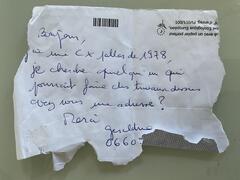 Bonjour,
j'ai une CX pallas de 1978
je cherche quelqu'un qui
pourrait faire des travaux dessus
avez vous une adresse ?
Merci
geraldine
0660